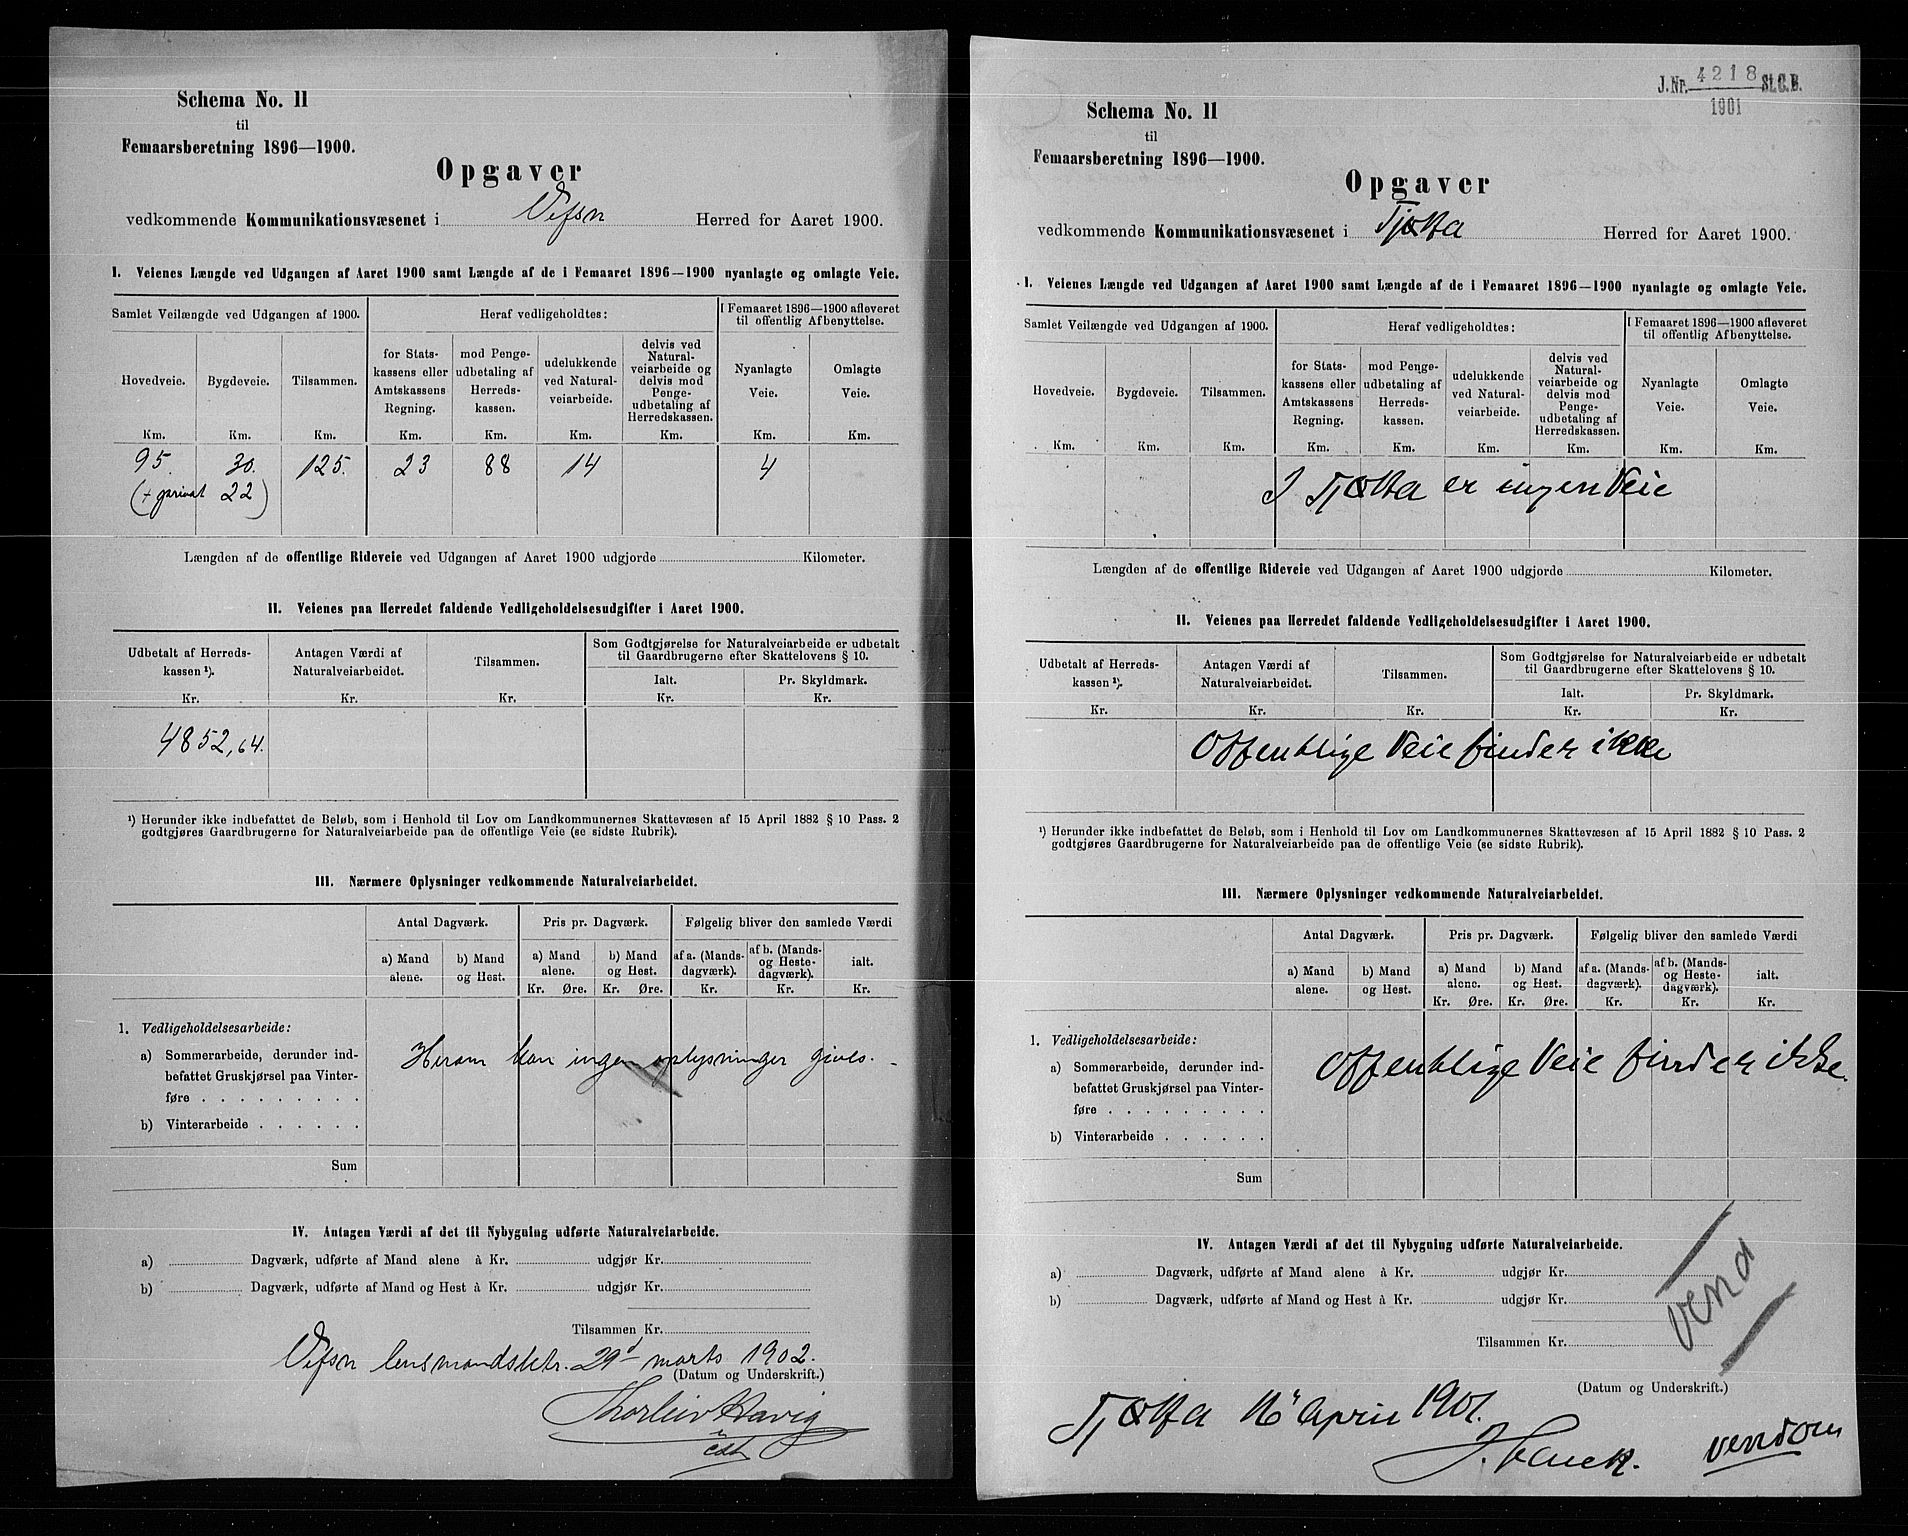 Schema No. 11
til
Femaarsberetning 1896—1900.
Opgaver
vedkommende Kommunikationsvæsenet i Vefsn Herred for Aaret 1900.
I. Veienes Længde ved Udgangen af Aaret 1900 samt Længde af de i Femaaret 1896—1900 nyanlagte og omlagte Veie.
Samlet Veilængde ved Udgangen af 1900.
Heraf vedligeholdtes:
I Femaaret 1896—1900 afleveret
til offentlig Afbenyttelse.
Hovedveie.
Bygdeveie.
Tilsammen.
for Stats-
kassens eller
Amtskassens
Regning.
mod Penge-
udbetaling af
Herreds-
kassen.
udelukkende
ved Natural-
veiarbeide.
delvis ved
Natural-
veiarbeide og
delvis mod
Penge-
udbetaling af
Herredskassen.
Nyanlagte
Veie.
Omlagte
Veie.
Km. Km. Km. Km. Km. Km. Km. Km. Km.
95. 30. 125. 23 88 14 4
(+ privat 22)
Længden af de offentlige Rideveie ved Udgangen af Aaret 1900 udgjorde Kilometer.
II. Veienes paa Herredet faldende Vedligeholdelsesudgifter i Aaret 1900.
Udbetalt af Herreds-
kassen ¹).
Antagen Værdi af
Naturalveiarbeidet.
Tilsammen.
Som Godtgjørelse for Naturalveiarbeide er udbetalt
til Gaardbrugerne efter Skattelovens § 10.
Ialt. Pr. Skyldmark.
Kr. Kr. Kr. Kr. Kr.
4852,64.
¹) Herunder ikke indbefattet de Beløb, som i Henhold til Lov om Landkommunernes Skattevæsen af 15 April 1882 § 10 Pass. 2
godtgjøres Gaardbrugerne for Naturalveiarbeide paa de offentlige Veie (se sidste Rubrik).
III. Nærmere Oplysninger vedkommende Naturalveiarbeidet.
Antal Dagværk. Pris pr. Dagværk. Følgelig bliver den samlede Værdi
a) Mand
alene.
b) Mand
og Hest.
a) Mand
alene.
b) Mand
og Hest.
af a. (Mands-
dagværk).
af b. (Mands-
og Heste-
dagværk).
ialt.
Kr. Øre. Kr. Øre. Kr. Kr. Kr.
1. Vedligeholdelsesarbeide:
a) Sommerarbeide, derunder ind-
befattet Gruskjørsel paa Vinter-
føre
Herom kan ingen oplysninger gives. -
b) Vinterarbeide
Sum
IV. Antagen Værdi af det til Nybygning udførte Naturalveiarbeide.
a) Dagværk, udførte af Mand alene à Kr. udgjør Kr.
b) Dagværk, udførte af Mand og Hest à Kr. udgjør Kr.
Tilsammen Kr.
Vefsn lensmandsbstr. 29d marts 1902.
(Datum og Underskrift.)
Thorleiv Havig
cst
J.Nr. 4218 St.C.B.
1901
Schema No. 11
til
Femaarsberetning 1896—1900.
Opgaver
vedkommende Kommunikationsvæsenet i Tjøtta Herred for Aaret 1900.
I. Veienes Længde ved Udgangen af Aaret 1900 samt Længde af de i Femaaret 1896—1900 nyanlagte og omlagte Veie.
Samlet Veilængde ved Udgangen af 1900.
Heraf vedligeholdtes:
I Femaaret 1896—1900 afleveret
til offentlig Afbenyttelse.
Hovedveie.
Bygdeveie.
Tilsammen.
for Stats-
kassens eller
Amtskassens
Regning.
mod Penge-
udbetaling af
Herreds-
kassen.
udelukkende
ved Natural-
veiarbeide.
delvis ved
Natural-
veiarbeide og
delvis mod
Penge-
udbetaling af
Herredskassen.
Nyanlagte
Veie.
Omlagte
Veie.
Km. Km. Km. Km. Km. Km. Km. Km. Km.
I Tjøtta er ingen Veie
Længden af de offentlige Rideveie ved Udgangen af Aaret 1900 udgjorde Kilometer.
II. Veienes paa Herredet faldende Vedligeholdelsesudgifter i Aaret 1900.
Udbetalt af Herreds-
kassen ¹).
Antagen Værdi af
Naturalveiarbeidet.
Tilsammen.
Som Godtgjørelse for Naturalveiarbeide er udbetalt
til Gaardbrugerne efter Skattelovens § 10.
Ialt. Pr. Skyldmark.
Kr. Kr. Kr. Kr. Kr.
Offentlige Veie finder ikke
¹) Herunder ikke indbefattet de Beløb, som i Henhold til Lov om Landkommunernes Skattevæsen af 15 April 1882 § 10 Pass. 2
godtgjøres Gaardbrugerne for Naturalveiarbeide paa de offentlige Veie (se sidste Rubrik).
III. Nærmere Oplysninger vedkommende Naturalveiarbeidet.
Antal Dagværk. Pris pr. Dagværk. Følgelig bliver den samlede Værdi
a) Mand
alene.
b) Mand
og Hest.
a) Mand
alene.
b) Mand
og Hest.
af a. (Mands-
dagværk).
af b. (Mands-
og Heste-
dagværk).
ialt.
Kr. Øre. Kr. Øre. Kr. Kr. Kr.
1. Vedligeholdelsesarbeide:
a) Sommerarbeide, derunder ind-
befattet Gruskjørsel paa Vinter-
føre
Offentlige Veie finder ikke.
b) Vinterarbeide
Sum
IV. Antagen Værdi af det til Nybygning udførte Naturalveiarbeide.
a) Dagværk, udførte af Mand alene à Kr. udgjør Kr.
b) Dagværk, udførte af Mand og Hest à Kr. udgjør Kr.
Tilsammen Kr.
Vend
(Datum og Underskrift.)
Tjøtta 16' April 1901.
vendom